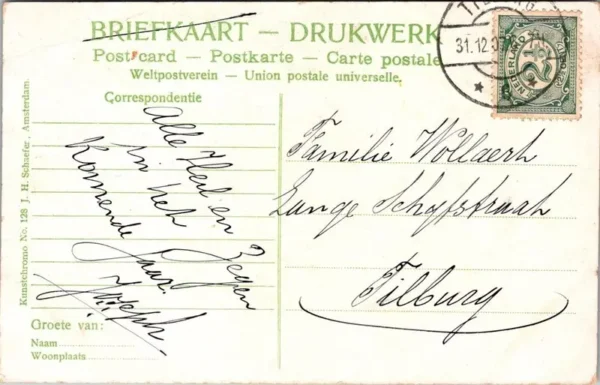 BRIEFKAART — DRUKWERK
Postcard — Postkarte — Carte postale
Weltpostverein — Union postale universelle.
Correspondentie
Alle Heil en Zegen
in het
Komende
Jaar.
Joseph
Familie Wollaert
Lange Schijfstraat
Tilburg
Groete van:
Naam
Woonplaats
Kunstchromo No. 128 J. H. Schaefer, Amsterdam.
31.12.07
NEDERLAND
2½